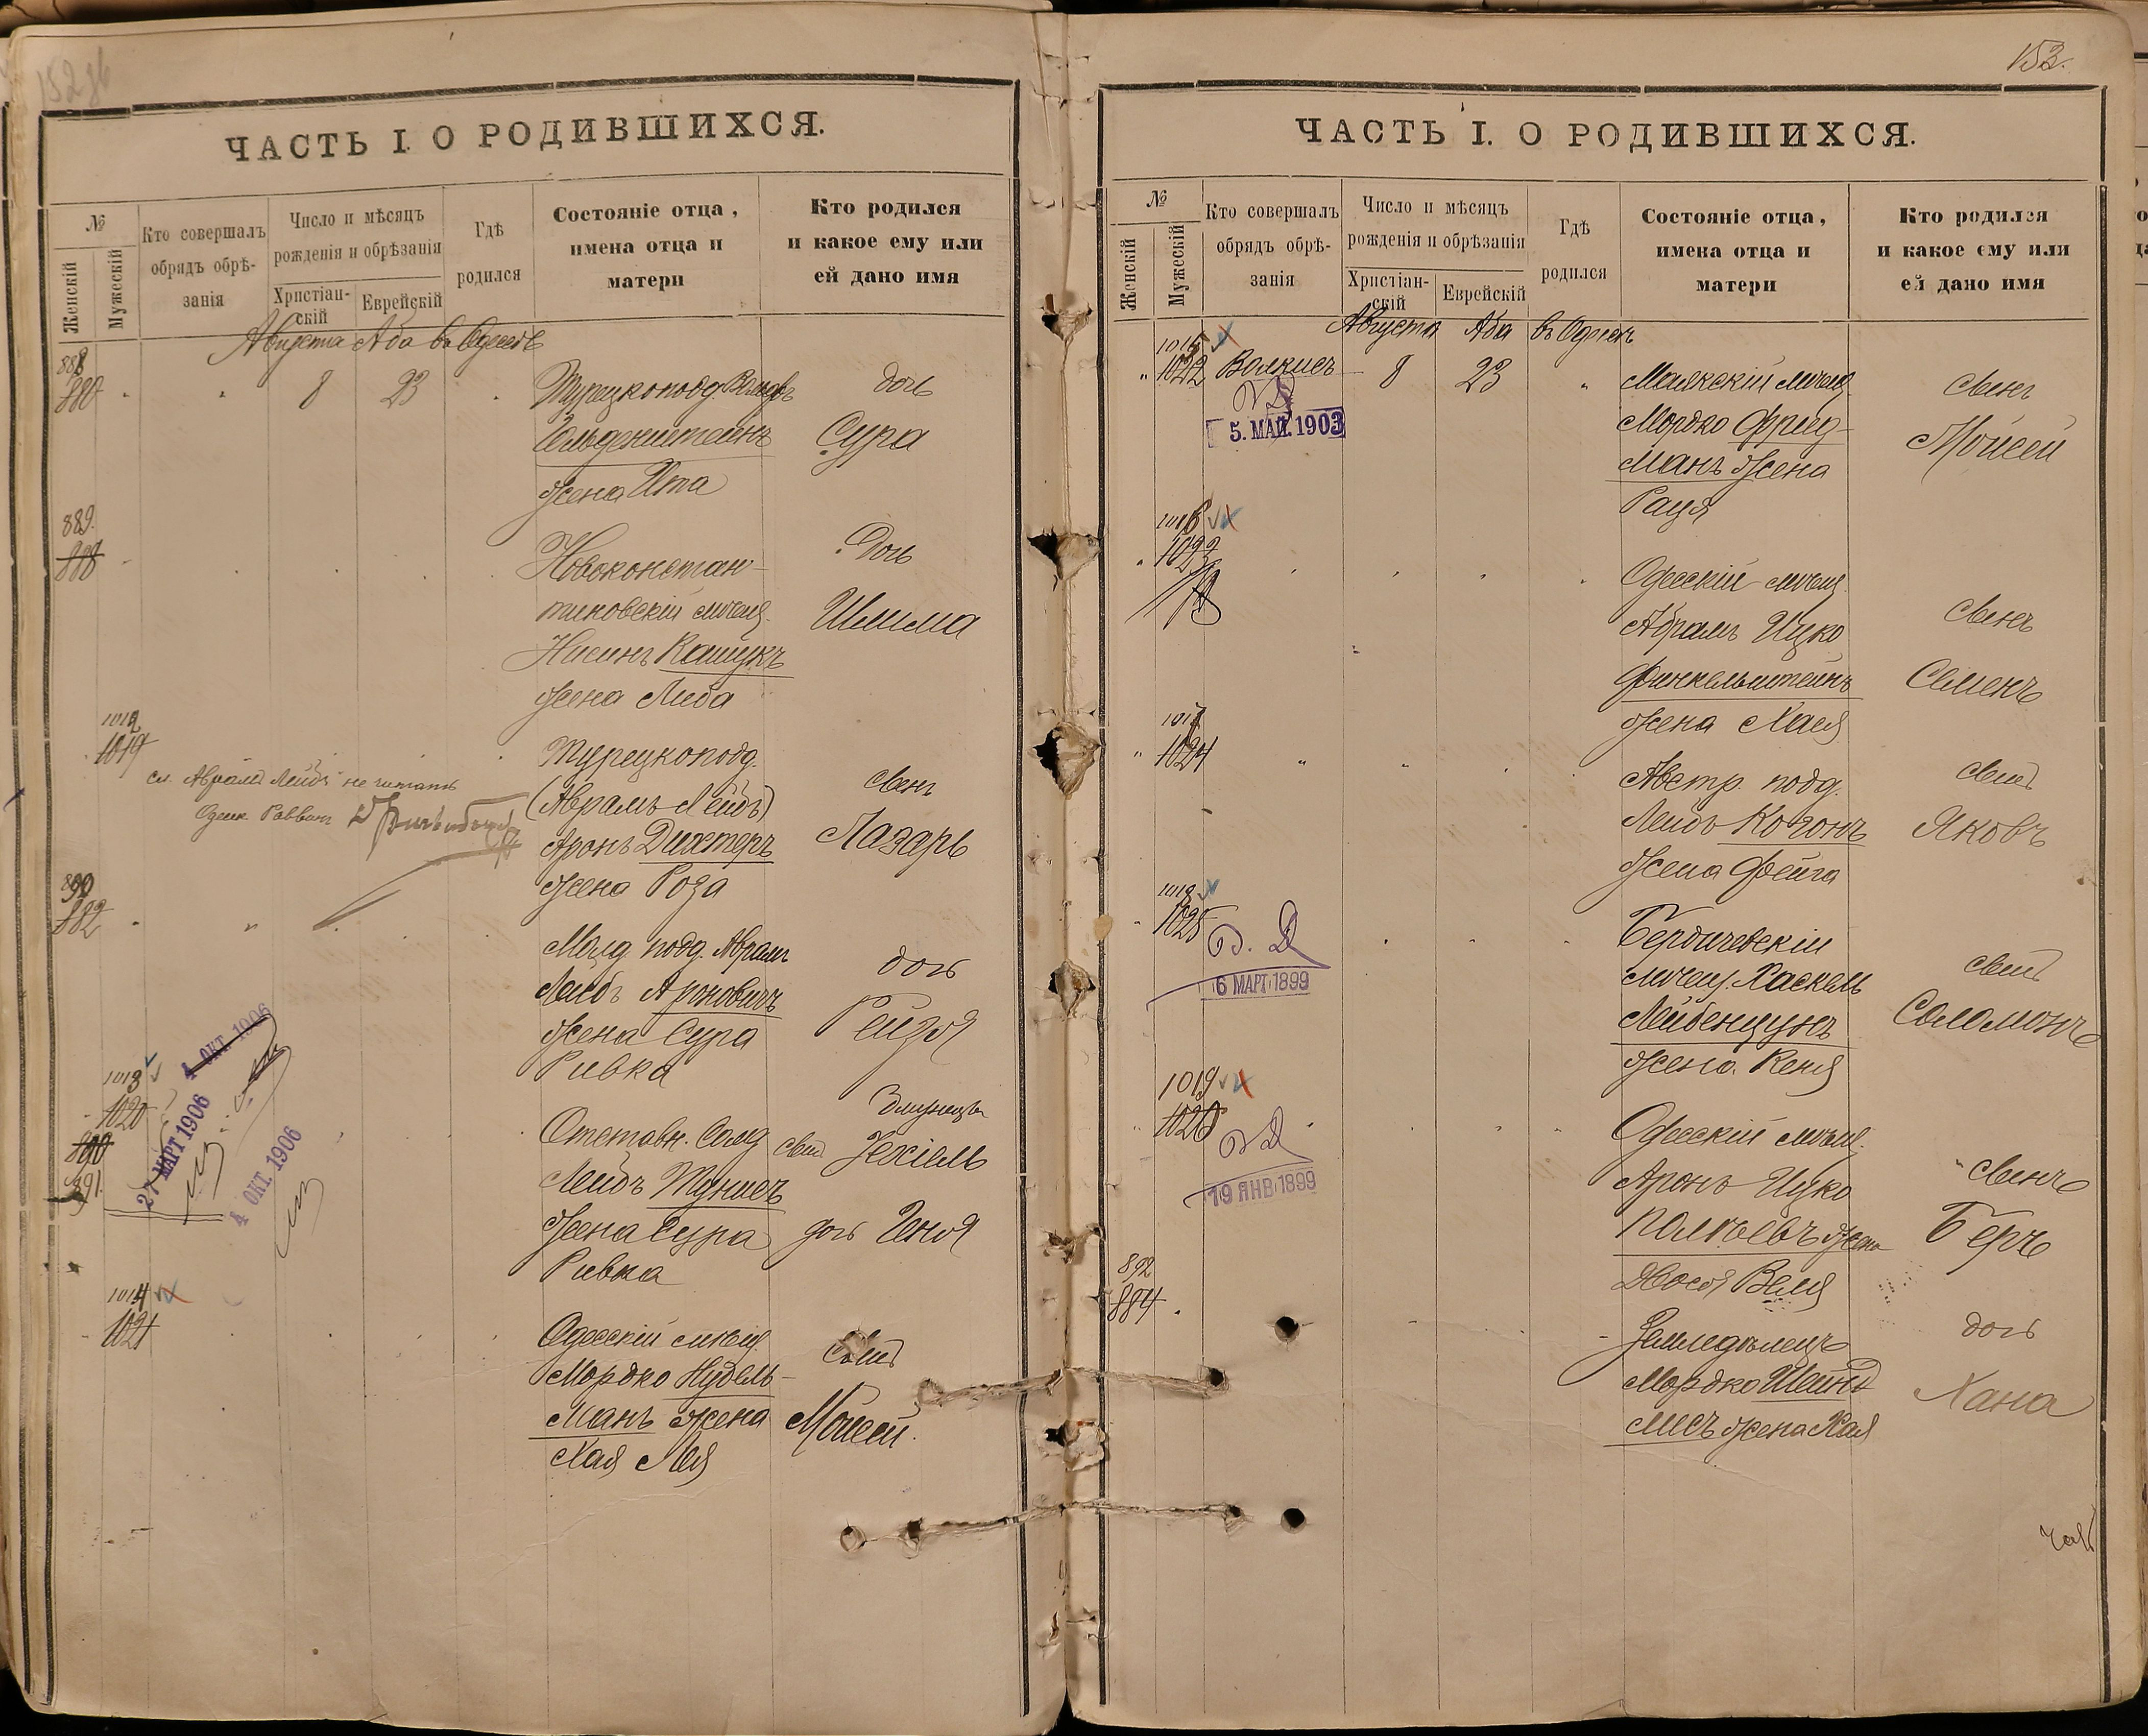 152 об
ЧАСТЬ I. О РОДИВШИХСЯ.
№
Женскій
Мужескій
Кто совершалъ обрядъ обрѣ-
занія
Число и мѣсяцъ
рожденія и обрѣзанія
Христіан-
скій
Еврейскій
Гдѣ
родился
Состояніе отца,
имена отца и
матери
Кто родился
и какое ему или
ей дано имя
Августа Аба въ Одессѣ
888
880
8 23
Турецкопод.
Гельденштейнъ
жена Ита
дочь
Сура
889.
888
Новоконстан-
тиновскій мѣщ.
Нисинъ Кашукъ
жена Либа
Дочь
Шлима
1012
1019
сл. Аврамъ Лейбъ не читать
Одесс. Раввинъ
Турецкопод.
(Аврамъ Лейбъ)
Аронъ Дихтеръ
жена Роза
сынъ
Лазарь
890
882
Молд. подд. Аврамъ
Лейбъ Ароновичъ
жена Сура
Ривка
дочь
Рейзя
1013
1020
890
891
4 ОКТ. 1906
27 МАРТ 1906
4 ОКТ. 1906
Отставн. Солд.
Лейбъ Тунисъ
жена Сура
Ривка
Близнецы
сынъ Іехіель
дочь Геня
1014
1021
Одесскій мѣщ.
Мордко Нудель-
манъ жена
Хая Лея
сынъ
Мойсей.
153.
ЧАСТЬ I. О РОДИВШИХСЯ.
№
Женскій
Мужескій
Кто совершалъ
обрядъ обрѣ-
занія
Число и мѣсяцъ
рожденія и обрѣзанія
Христіан-
скій
Еврейскій
Гдѣ
родился
Состояніе отца,
имена отца и
матери
Кто родился
и какое ему или
ей дано имя
Августа Аба въ Одессѣ
1015
1022
Волкисъ 8 23
5. МАЙ. 1903
Маякскій мѣщ.
Мордко Фрид-
манъ жена
Рація
сынъ
Мойсей
1016
1023
Одесскій мѣщ.
Абрамъ Ицко
Финкельштейнъ
жена Хая
сынъ
Семенъ
1017
1024
Австр. подд.
Лейбъ Когонъ
жена Фейга
сынъ
Яковъ
1018
1025
6 МАРТ 1899
Бердичевскій
мѣщ. Хаскель
Лейбенцунъ
жена Кеня
сынъ
Соломонъ
1019
1026
19 ЯНВ 1899
Одесскій мѣщ.
Аронъ Ицко
жена
Двося Беля
сынъ
Беръ
892
884
Земледѣлецъ
Мордко
жена Хая
дочь
Хана